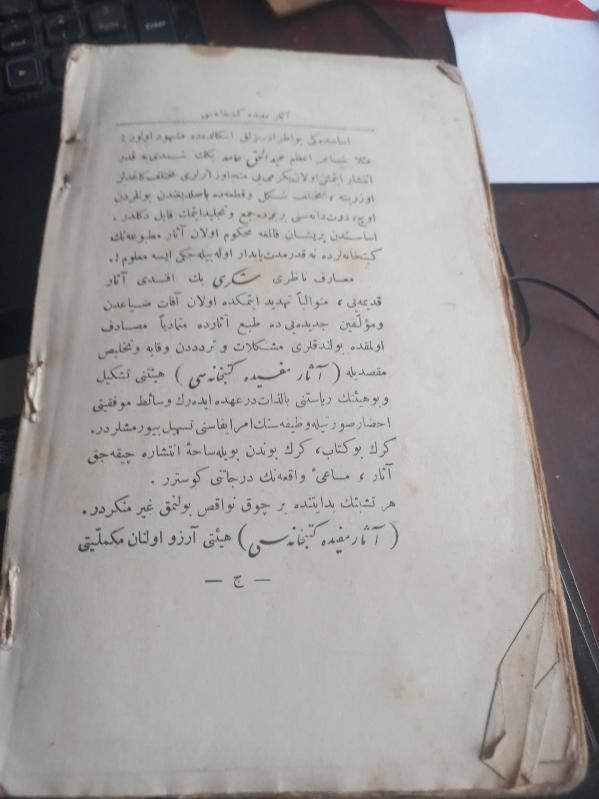 آثار مفیده کتبخانه‌سی
اساسنده‌کی بو اطرادسزلق اشکالده‌ده مشهود اولور!
مثلا شاعر اعظم عبدالحق حامد بکک شمدی‌یه قدر
انتشار ایتمش اولان یکرمی‌بی متجاوز اثرلری مختلف کاغدلر
اوزرینه، مختلف شکل و قطعه‌ده باصلدیغندن بونلردن
اوچ، دورت دانه‌سی بر یرده جمع و تجلید ایتمك قابل دکلدر.
اساسندن پریشان قالمغه محکوم اولان آثار مطبوعه‌نك
کتبخانه‌لرده نه قدر مدت پایدار اوله بیله‌جکی ایسه معلوم!.
معارف ناظری شکری بك افندی آثار
قدیمه‌یی، متوالیاً تهدید ایتمکده اولان آفات ضیاعدن
و مؤلّفین جدیده‌یی ده طبع آثارده متمادیاً مصادف
اولمقده بولندقلری مشکلات و تردددن وقایه و تخلیص
مقصدیله (آثار مفیده کتبخانه‌سی) هیئتنی تشکیل
و بو هیئتك ریاستنی بالذات در عهده ایده‌رك وسائط موفقیتی
احضار صورتیله وظیفه‌سنك امر ایفاسنی تسهیل بیورمشلردر.
كرك بو کتاب، كرك بوندن بویله ساحهٔ انتشاره چیقه‌جق
آثار، مساعیٔ واقعه‌نك درجاتنی کوسترر.
هر تشبثك بدایتنده بر چوق نواقص بولنمق غیر منکردر.
(آثار مفیده کتبخانه‌سی) هیئتی آرزو اولنان مکملّیتی
— ج —